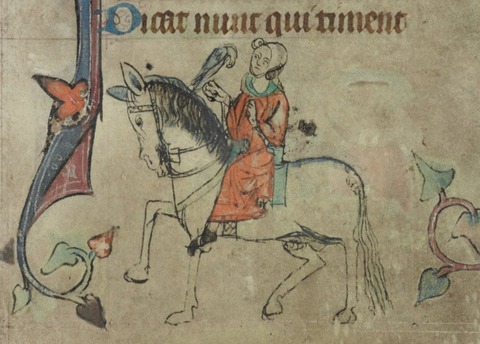 Dicat nunc qui timent